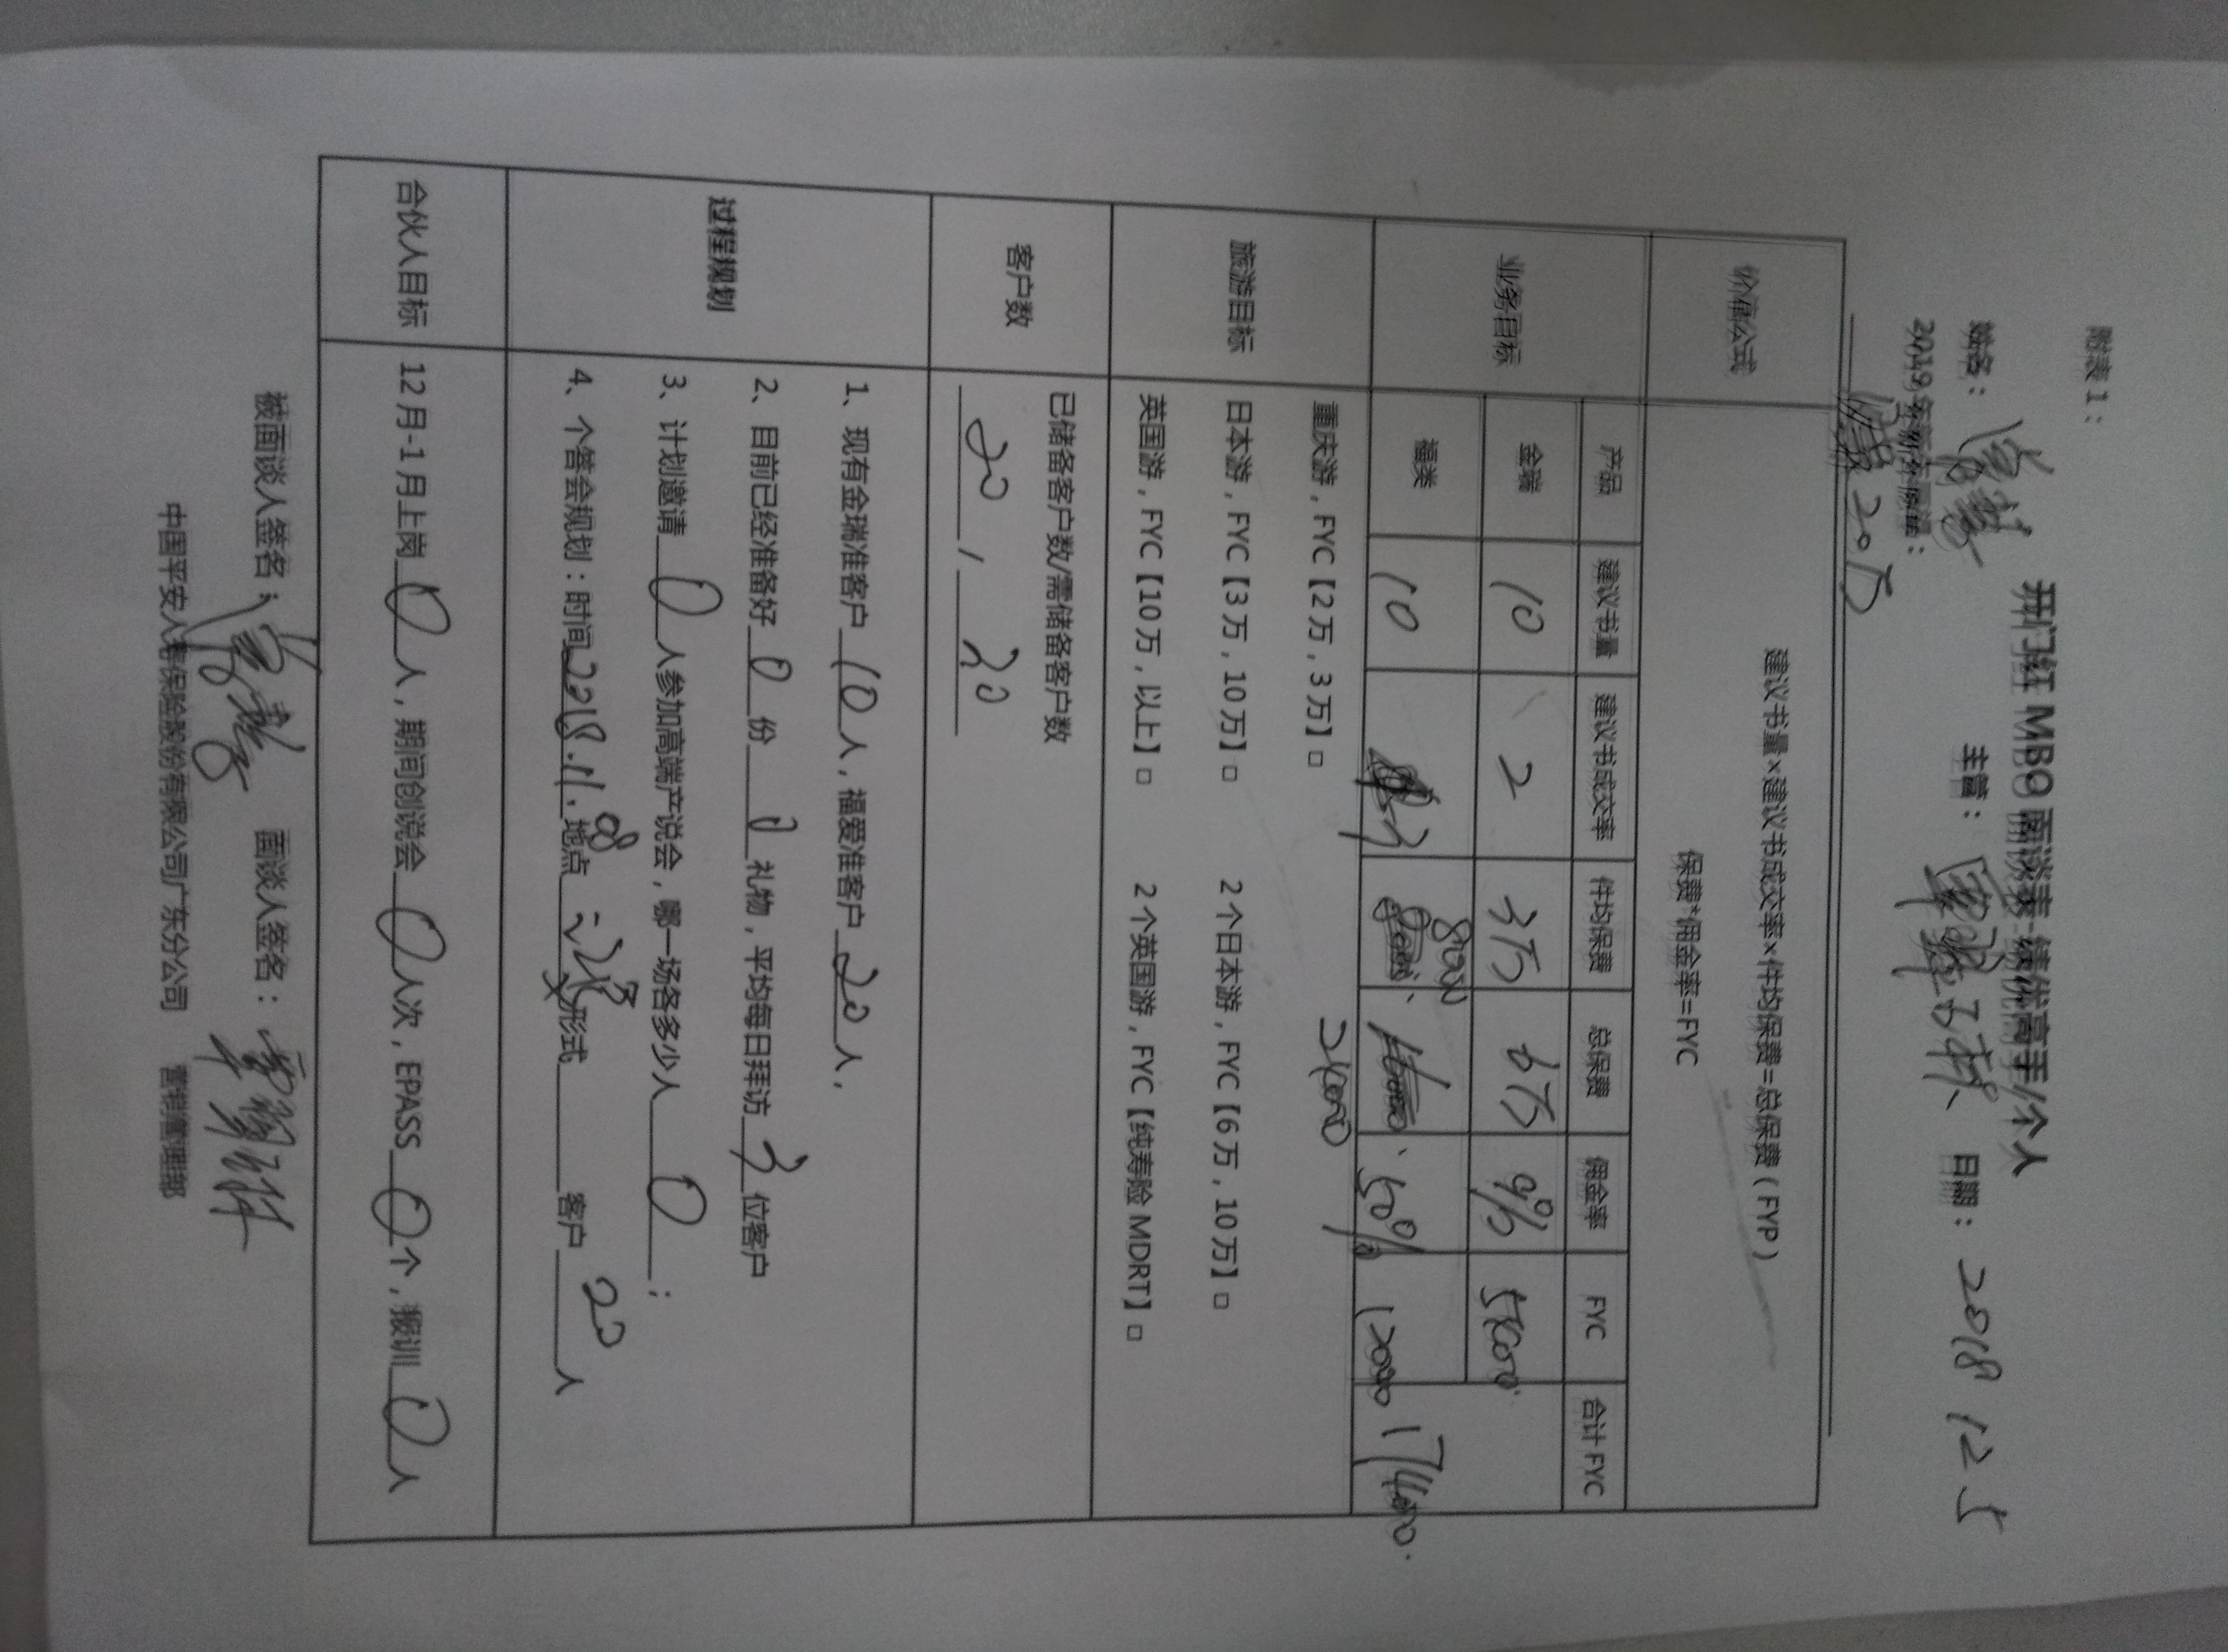 附表1：
开门红 MBO 面谈表-绩优高手/个人
姓名： 主管： 日期：2018 12 5
2019年新年愿望：
20万
价值公式 建议书量×建议书成交率×件均保费=总保费（FYP）
保费*佣金率=FYC
业务目标 产品 建议书量 建议书成交率 件均保费 总保费 佣金率 FYC 合计FYC
金瑞 10 2 3万 6万 9% 5400
福类 10 3 8000 50% 12000 17400
24000
旅游目标 重庆游，FYC【2万，3万】□
日本游，FYC【3万，10万】□ 2个日本游，FYC【6万，10万】□
英国游，FYC【10万，以上】□ 2个英国游，FYC【纯寿险 MDRT】□
客户数 已储备客户数/需储备客户数
20 / 20
过程规划 1、现有金瑞准客户10人，福爱准客户20人，
2、目前已经准备好0份 礼物，平均每日拜访3位客户
3、计划邀请0人参加高端产说会，哪一场各多少人0；
4、个答会规划：时间2018.11.8地点 形式 客户20人
合伙人目标 12月-1月上岗0人，期间创说会0人次，EPASS 0个，猴训0人
被面谈人签名： 面谈人签名：
中国平安人寿保险股份有限公司广东分公司 营销管理部